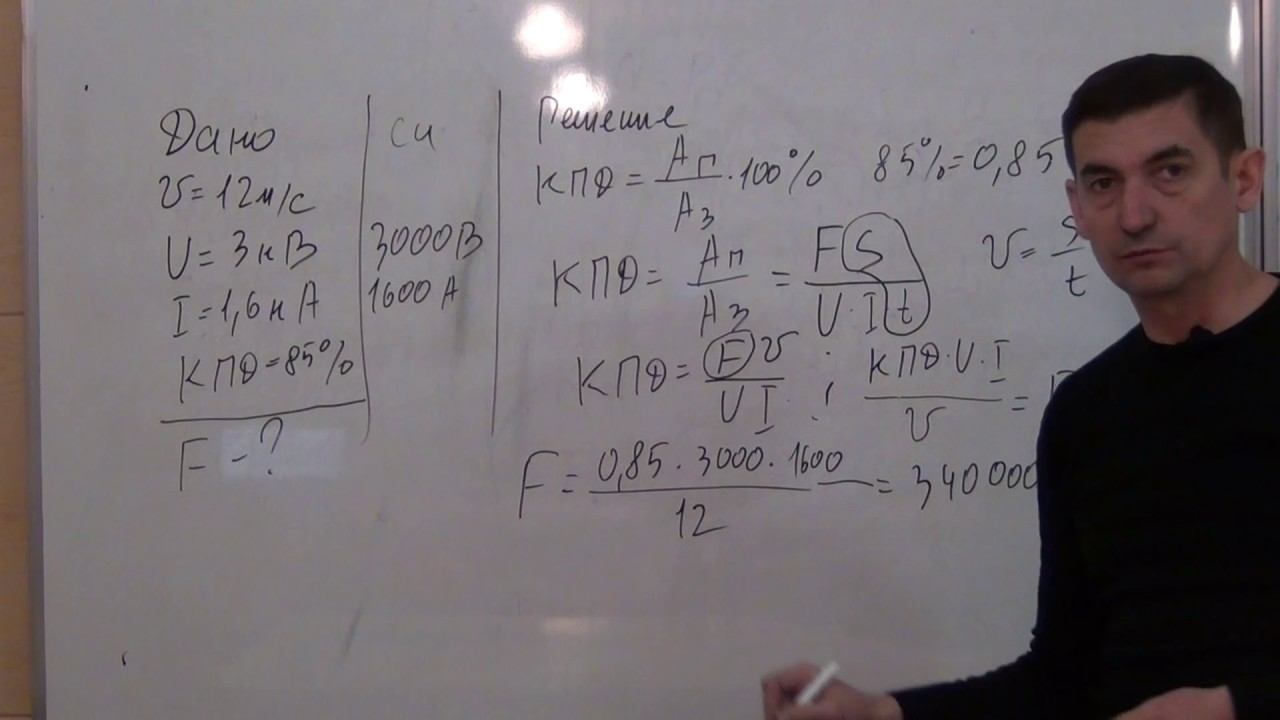 Дано
υ=12м/с
U=3кВ
I=1,6кА
КПД=85%
F-?
СИ
3000В
1600А
Решение
КПД=Ап/Аз·100% 85%=0,85
КПД=Ап/Аз=FS/U·It υ=S/t
КПД=Fυ/UI; КПД·U·I/υ=
F=0,85·3000·1600/12=340000